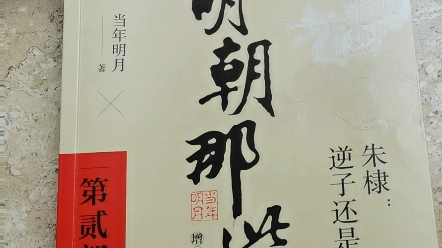 明朝那
朱棣：
逆子还是
当年明月
著
第贰
当年
明月
增